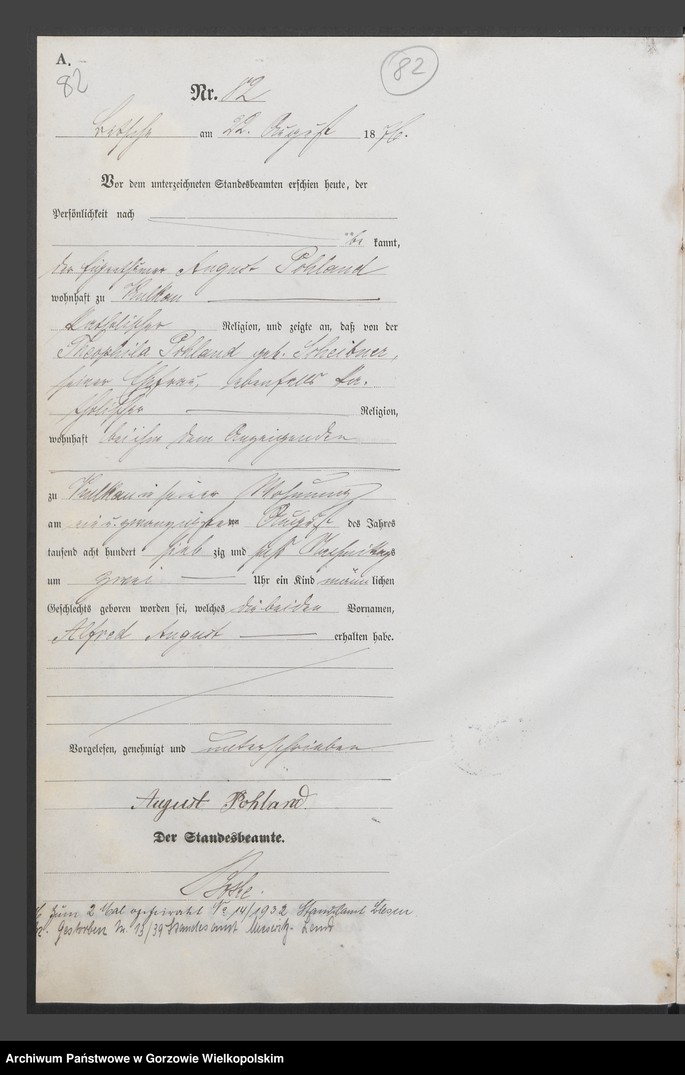 A.
82
82
Nr. 82
Betsche am 22. August 1876.
Vor dem unterzeichneten Standesbeamten erschien heute, der
Persönlichkeit nach
be kannt,
der Eigenthümer August Pohland
wohnhaft zu Kulkau
katholischer Religion, und zeigte an, daß von der
Theophila Pohland geb. Scheibner,
seiner Ehefrau, ebenfalls ka-
tholischer Religion,
wohnhaft bei ihm dem Anzeigenden
zu Kulkau in seiner Wohnung
am August des Jahres
tausend acht hundert sieb zig und sechs Nachmittags
um zwei Uhr ein Kind männ lichen
Geschlechts geboren worden sei, welches die beiden Vornamen,
Alfred August erhalten habe.
Vorgelesen, genehmigt und unterschrieben
August Pohland.
Der Standesbeamte.
Zum 2 Mal geheiratet No 14/1932 Standesamt
Gestorben Nr. 13/39 Standesamt Meseritz-Land
Archiwum Państwowe w Gorzowie Wielkopolskim